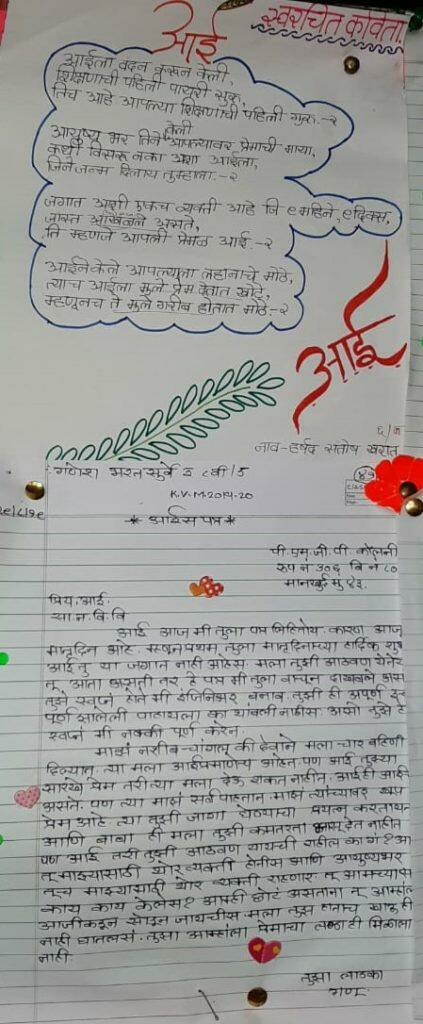 स्वरचित कविता
आई
आईला वंदन करून केली,
शिक्षणाची पहिली पायरी सुरू,
तिच आहे आपल्या शिक्षणाची पहिली गुरू.-२
आयुष्य भर तिने केली आपल्यावर प्रेमाची माया,
कधी विसरू नका अशा आईला,
जिने जन्म दिलाय तुम्हाला.-२
जगात अशी एकच व्यक्ती आहे जि ९ महिने, ९ दिवस,
जास्त ओळखत असते,
ति म्हणजे आपली प्रेमळ आई.-२
आईने केले आपल्याला लहानाचे मोठे,
त्याच आईला मुले प्रेम देतात खोटे,
म्हणूनच ते मुले गरीब होतात मोठे.-२
आई
नाव-हर्षद संतोष खरात
गणेश भरत सुर्वे ८वी/5
K.V.M-2019-20
* आईस पत्र *
पी.एम.जी.पी. कॉलनी
रूम नं ३०६ बि नं ८०
मानखुर्द मु
प्रिय.आई.
सा.न.वि.वि
आई आज मी तुला पत्र लिहितोय. कारण आज
मातृदिन आहे. म्हणून प्रथम तुला मातृदिनाच्या हार्दिक शुभ
आई तु या जगात नाही आहेस. मला तुझी आठवण येते
तू आता असती तर हे पत्र मी तुला वाचून दाखवले अस
तुझे स्वप्नं होते मी इंजिनिअर बनाव. तुझी ही अपूर्ण इ
पूर्ण झालेली पाहायला का थांबली नाहीस. असो तुझे हे
स्वप्नं मी नक्की पूर्ण करेन.
माझं नसीब चांगलं की देवाने मला चार बहिणी
दिल्यात. त्या मला आईप्रमाणेच आहेत. पण आई तुझ्या
सारखे प्रेम तरी त्या मला देऊ शकत नाहीत. आई ही आई
असते. पण त्या माझं सर्व पाहतात. माझं त्यांच्यावर खूप
प्रेम आहे. त्या तुझी जागा घेण्याचा प्रयत्न करतायत
आणि बाबा ही मला तुझी कमतरता भासू देत नाहीत
पण आई तरी तुझी आठवण यायची राहील का गं? आ
तू माझ्यासाठी थोर व्यक्ती होतीस आणि आयुष्यभर
तूच माझ्यासाठी थोर व्यक्ती राहणार. तू आमच्यास
काय काय केलेस? आम्ही छोटं असताना तू आम्हाल
आजीकडून सोडून जायचीस मला तुझ हातानं खाऊ ही
नाही घातलसं. तुझा आम्हांला प्रेमाचा लळा ही मिळाला
नाही.
तुझा लाडका
गणू.